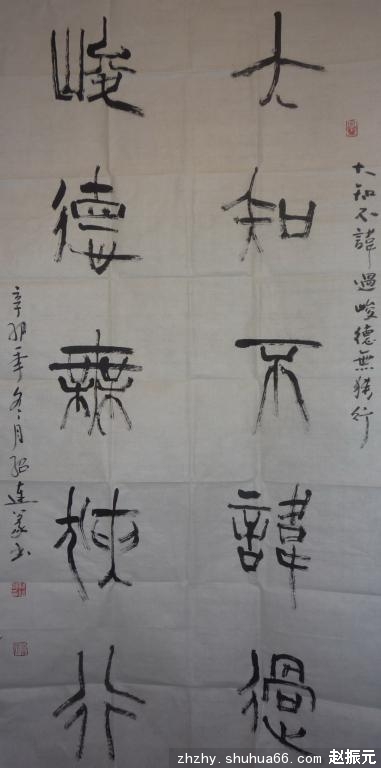 大知不諱過峻德無狹行
大知不諱過
峻德無狹行
辛卯年冬月
zhzhy.shuhua66.com 赵振元